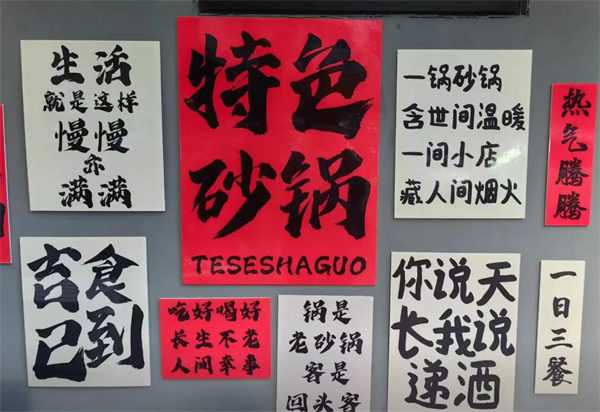 生活
就是这样
慢慢
亦
满满
特色
砂锅
TESESHAGUO
一锅砂锅
含世间温暖
一间小店
藏人间烟火
热气腾腾
吉食
己到
吃好喝好
长生不老
人间幸事
锅是
老砂锅
客是
回头客
你说天
长我说
递酒
一日三餐